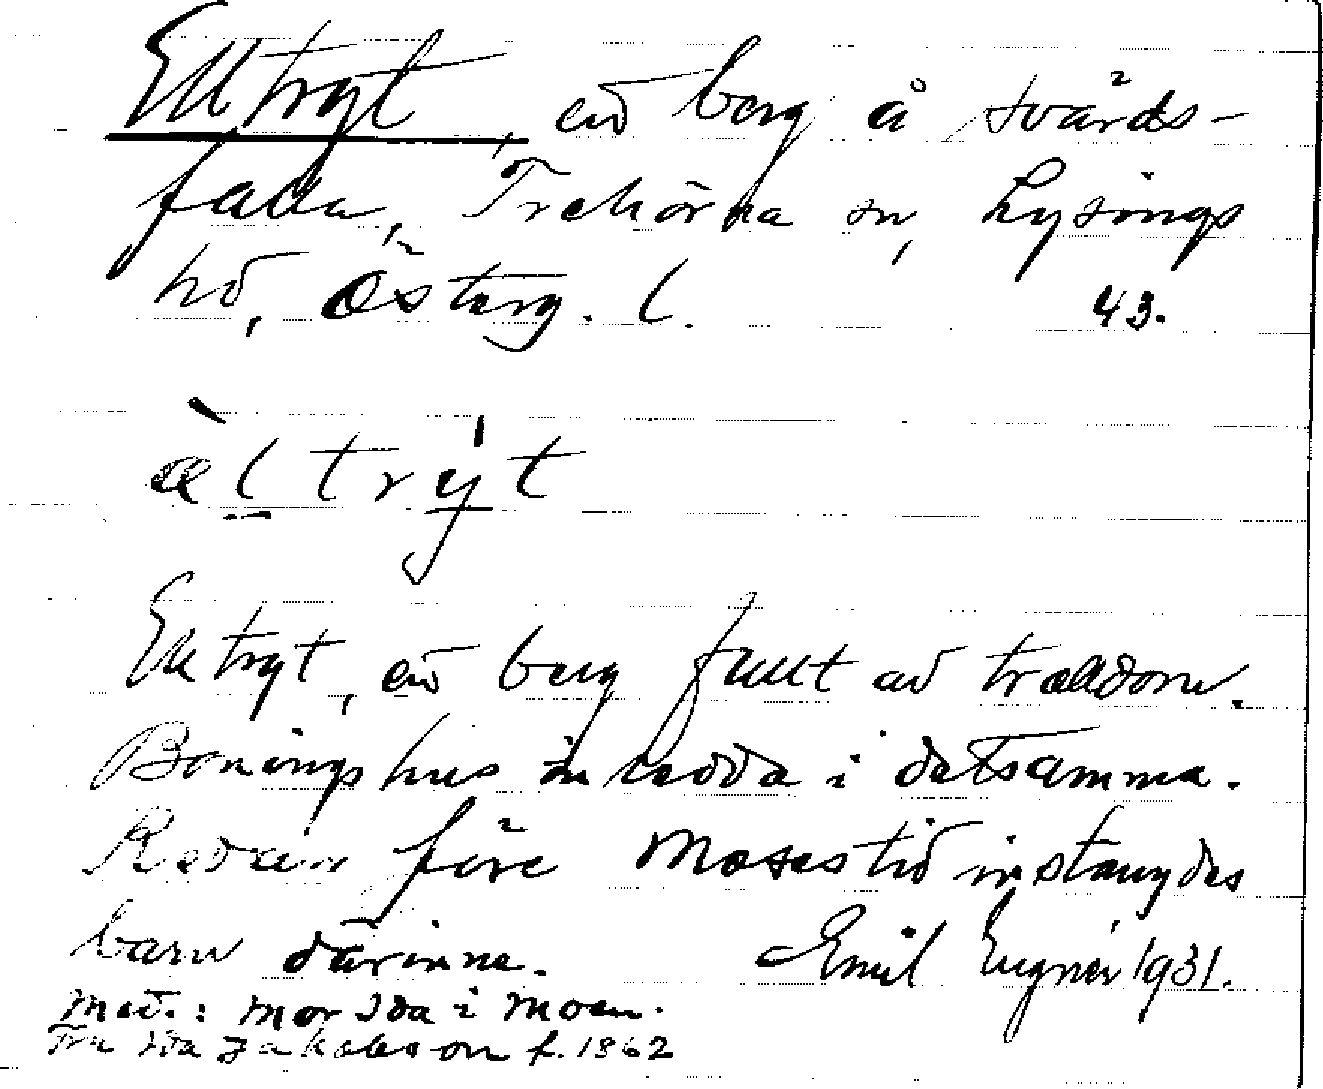 Elltryt, ett berg å svärds-
falla, Trehörna sn, Lysings
hd, Österg. l. 43.
æ̀ltrýt
Elltryt, ett berg fullt av trolldom.
Boningshus inredda i detsamma.
Redan före Moses tid instängdes
barn därinne. Emil Eugnér 1931.
Med.: mor Ida i Moen.
Fru Ida Jakobsson f. 1862